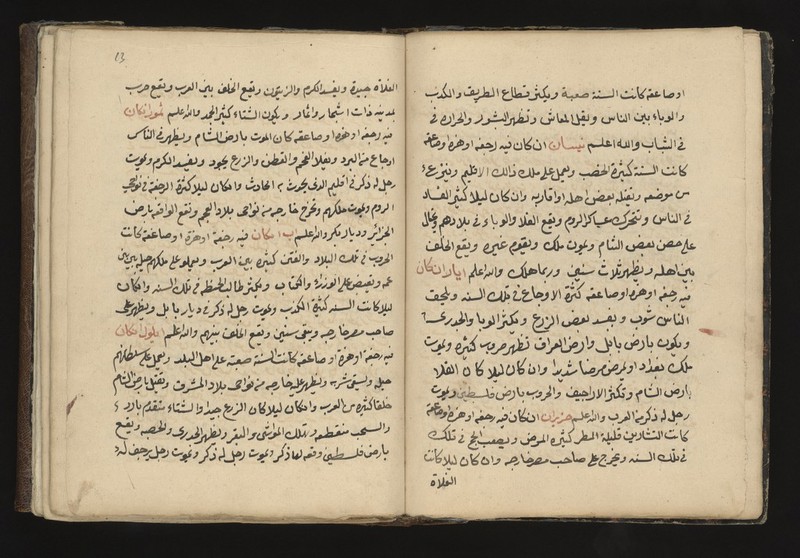 او صاعقة كانت السنة صعبة ويكثر قطاع الطريق والكذب
والوباء بين الناس ويقل المعاش وتظهر البثور والجراد في
في الشباب والله اعلم نيسان ان كان فيه رجفه او هزة او صاعقة
كانت السنة كثيرة الخصب ويعمل على ملك ذالك الاقليم وينزع
من موضعه وتقتله بعض اهله واقاربه وان كان ليلا كثير الفساد
في الناس وتتحرك عساكر الروم ويقع الغلا والوباء في بلادهم
على حصن بعض الشام ويموت ملك ويقوم غيره ويقع الخلف
بين اهله ويظهر ثلاث سنين وربما هلك والله اعلم ايار ان كان
فيه رجفه او هزه او صاعقه كثرة الاوجاع في تلك السنه ويلحق
الناس ويفسد بعض الزرع ويكثر الوبا والجدري
ويكون بارض بابل وارض العراق تظهر حروب كثيره ويموت
ملك بغداد او يمرض مرضا شديدا وان كان ليلا كان الغلا
بارض الشام وتكثر الاراجيف والحروب بارض فلسطين ويموت
رجل له ذكر من العرب والله اعلم حزيران ان كان فيه رجفه او هزه او صاعقة
كانت التشارين قليلة المطر كثيرة المرض ويصعب في تلك
في تلك السنه ويخرج على صاحب مصر خارجه وان كان ليلا كانت
الغلاة
13
الغلاة جيدة ويفسد الكرم والزيتون ويقع الخلف بين العرب ويقع حرب
بمدينه ذات اشجار واثمار ويكون الشتاء كثير الجمد والله اعلم تموز ان كان
فيه رجفه او هزة او صاعقه كان الموت بارض الشام ويظهر في الناس
اوجاع من البرد ويغلا الفحم والقطن والزرع يجود ويفسد الكرم ويموت
رجل له ذكر في اقليم الذي يحدث به الحادث وان كان ليلا كثرة الرجفة في نواحي
الروم ويموت ملكهم ويخرج خارجه من نواحي بلاد العجم وتقع الوافة بارض
الجزائر وديار بكر والله اعلم اب ان كان فيه رجفه او هزة او صاعقة كانت
الحروب في تلك البلاد والفتن كثيره بين العرب ويعملو على ملكهم حيله بين بني
عمه ويقبض على الوزراء والكتاب ويكثر طالب الحنطه في تلك السنه وان كان
ليلا كانت السنه كثيرة الكذب ويموت رجل له ذكر في ديار بابل ويظهر على
صاحب مصر خارجه ويبقى سنين ويقع الخلف بينهم والله اعلم ايلول ان كان
فيه رجفة او هزة او صاعقه كانت السنة صعبه على اهل البلد ويعمل على سلطانهم
حيله ويسقى شربه ويظهر عليه خارجه من نواحي بلاد المشرق ويقتل بارض الشام
خلقا كثيره من العرب وان كان ليلا كان الزرع جيدا والشتاء متقدم بارد
والسحب منقطعه وتهلك المواشي والبقر ويظهر الجدري والحصبه ويقع
بارض فلسطين وقعه لها ذكر ويموت رجل له ذكر ويموت رجل يرجف له